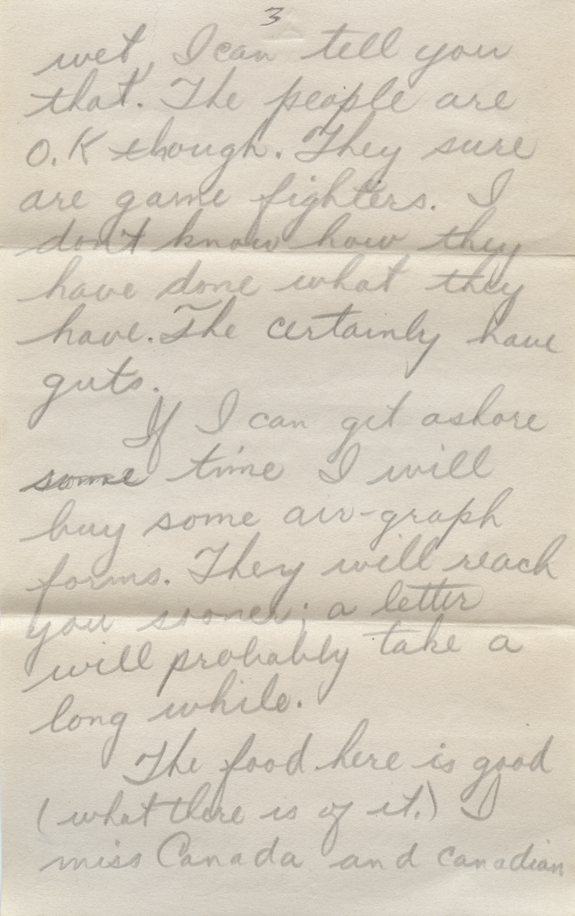 3
wet, I can tell you
that. The people are
O.K though. They sure
are game fighters. I
don't know how they
have done what they
have. The certainly have
guts.
If I can get ashore
some time I will
buy some air-graph
forms. They will reach
you sooner; a letter
will probably take a
long while.
The food here is good
(what there is of it.) I
miss Canada and canadian